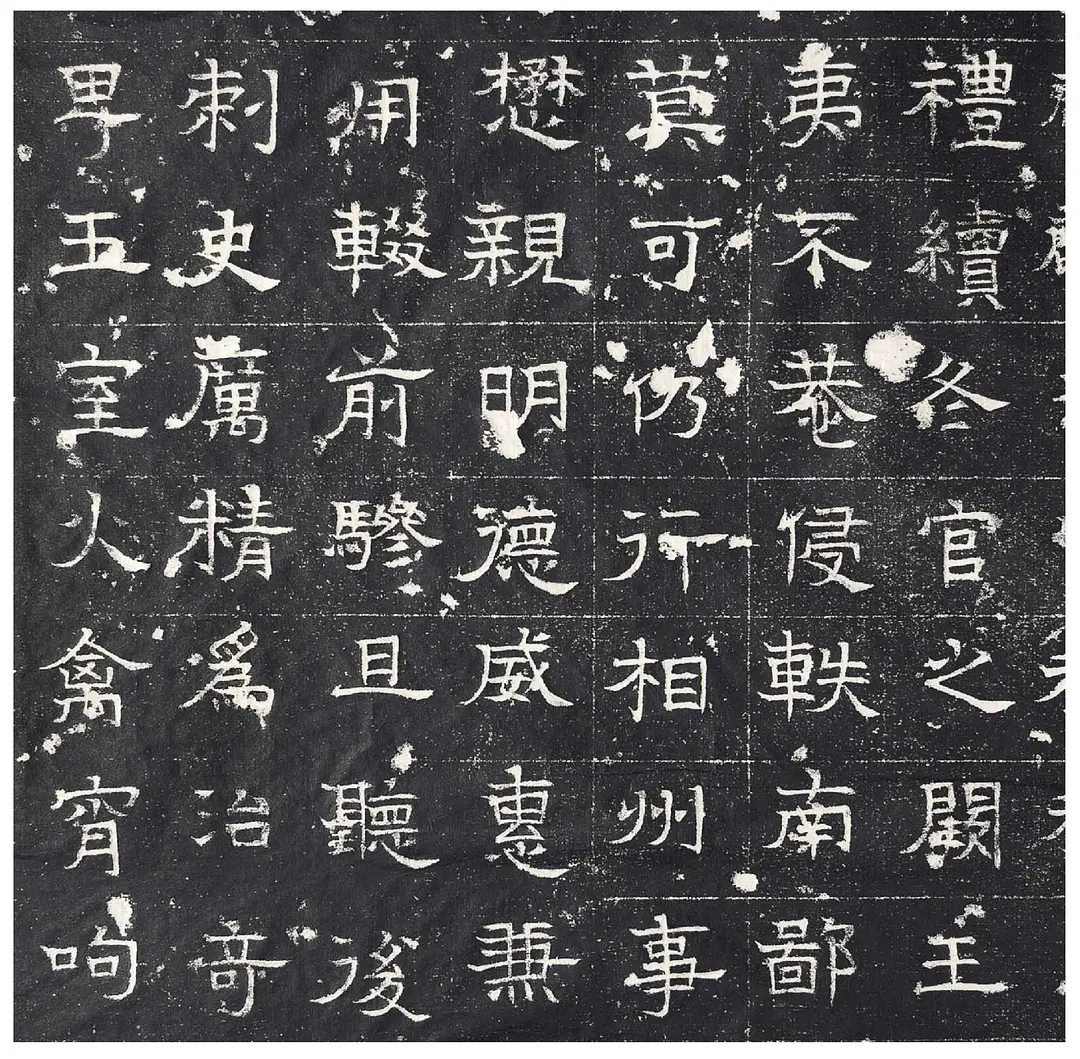 禮續冬官之闕王
夷不恭侵軼南鄙
莫可仍行相州事
懋親明德威惠兼
用輟前驂且聽後
刺史厲精爲治竒
五室火禽宵呴